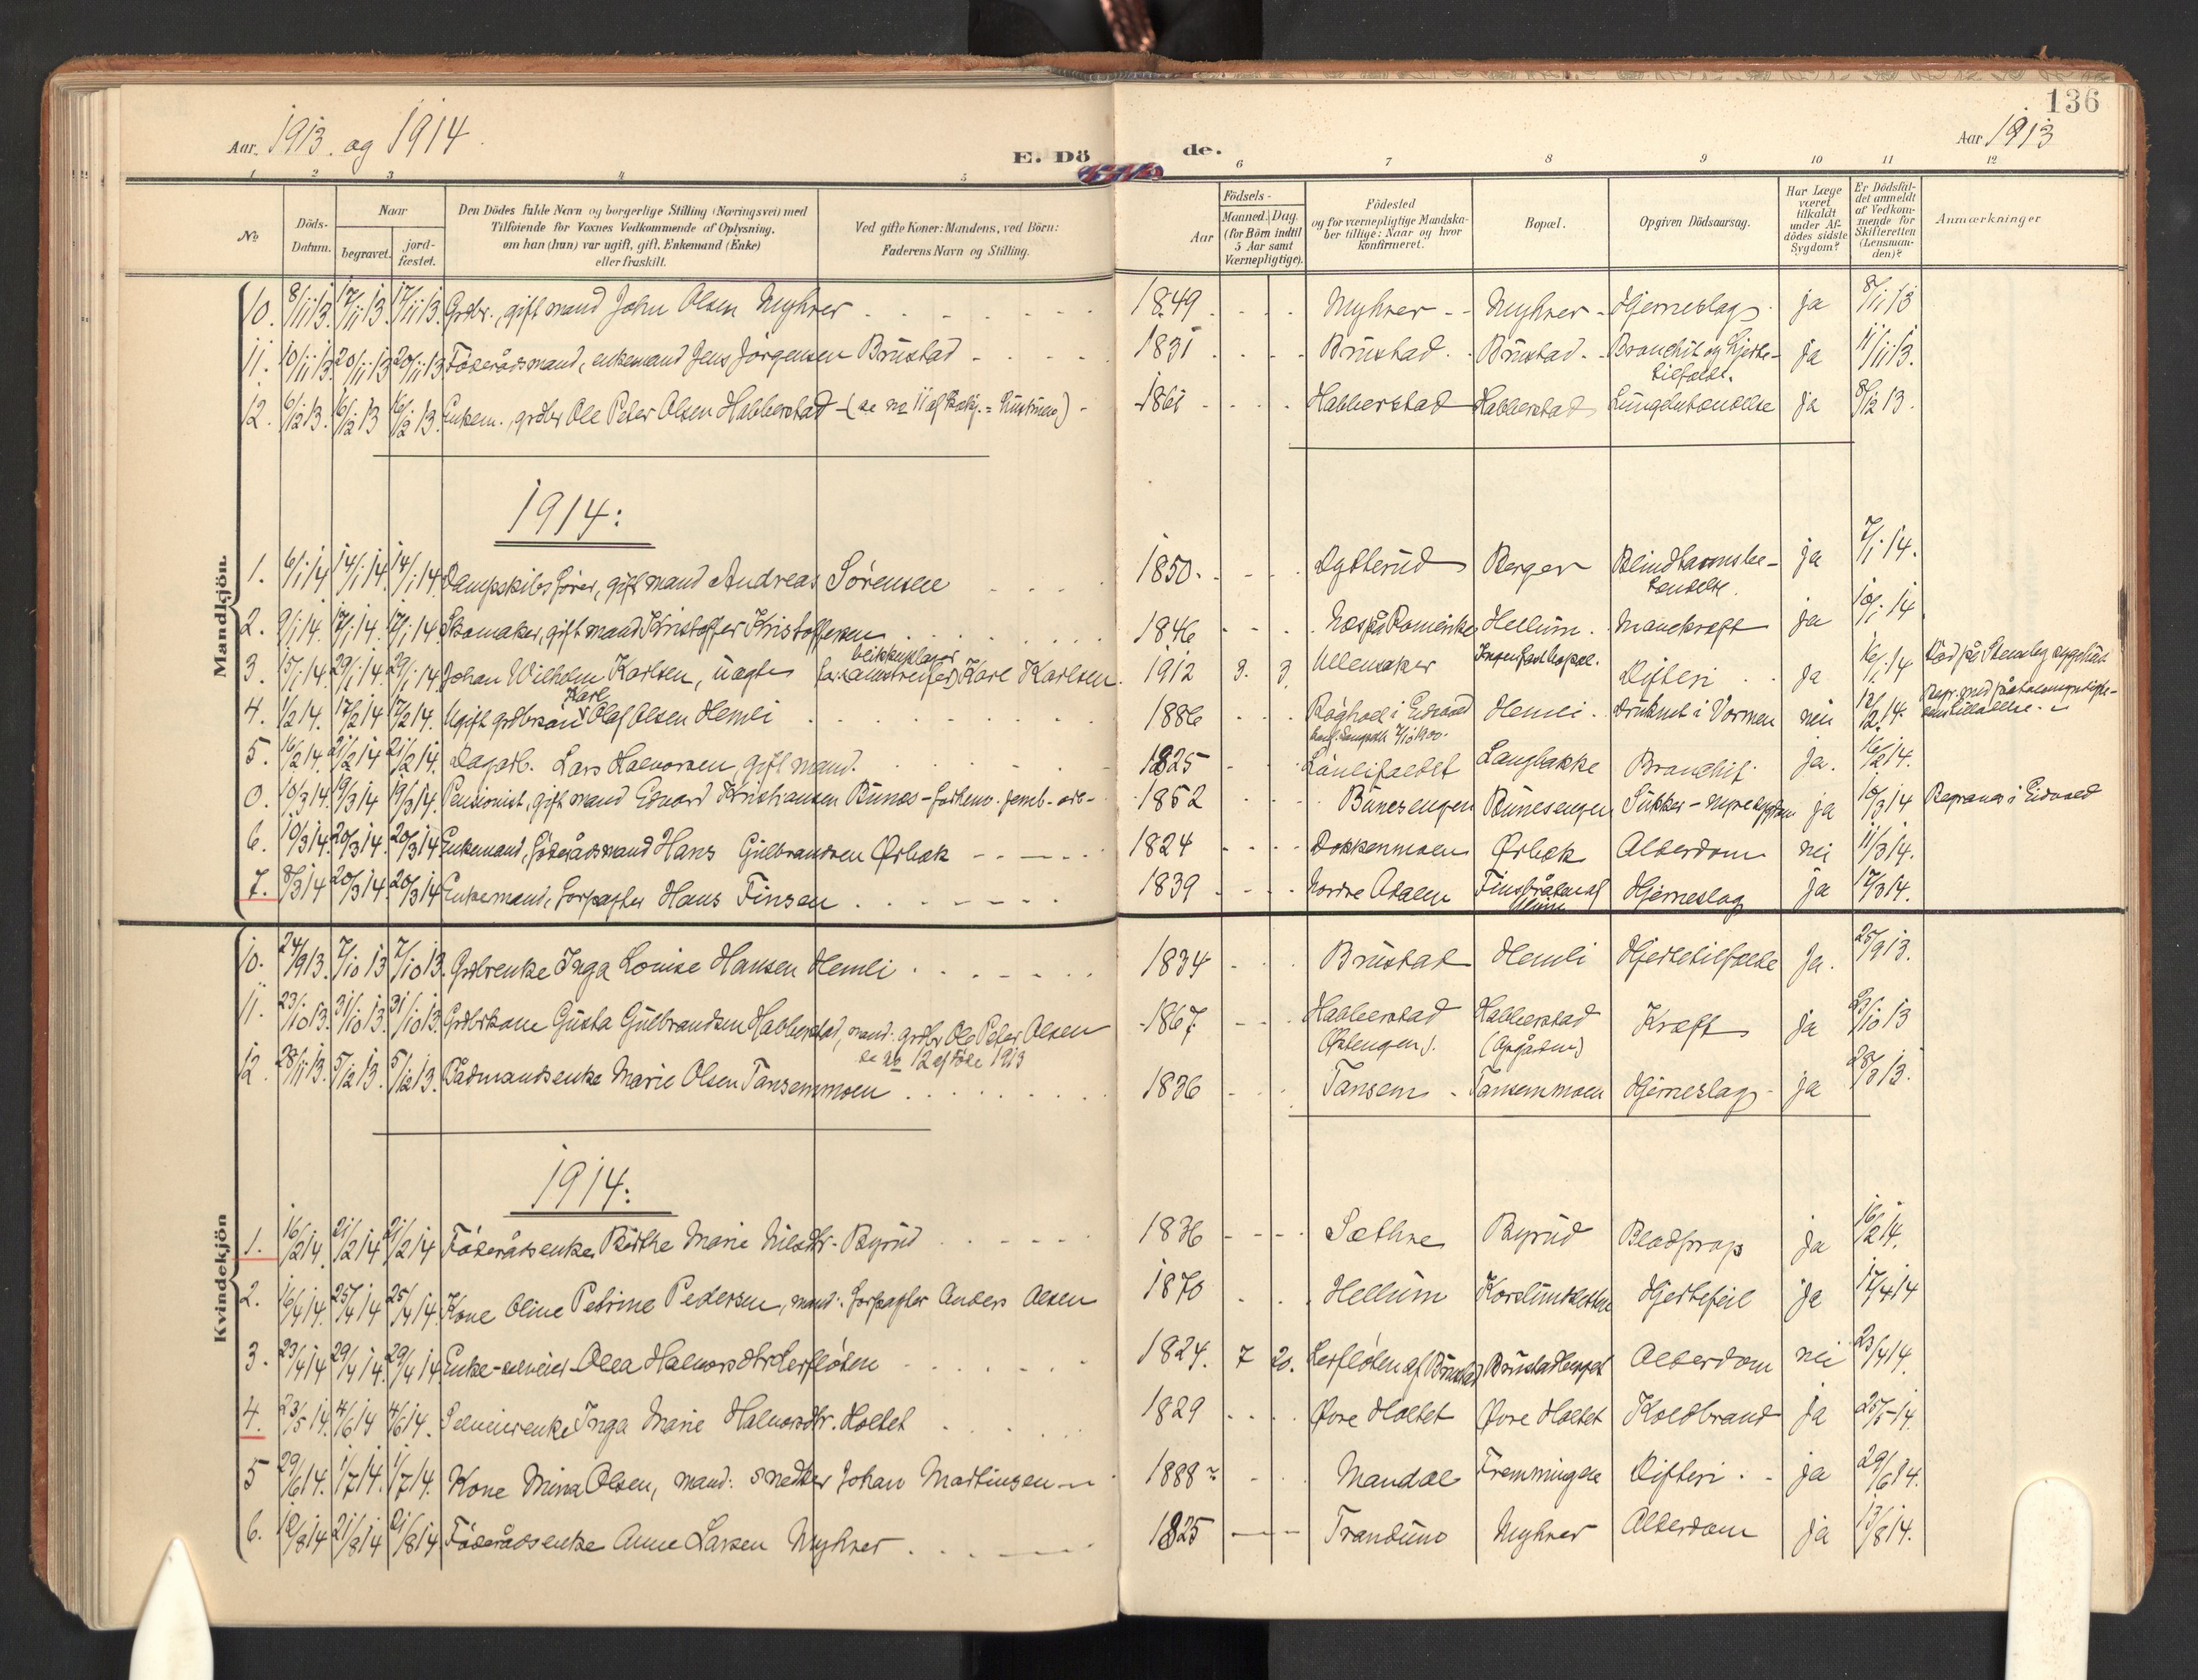 136
Aar 1913 og 1914.
E. Dö
de.
Aar 1913
1 2 3 4 5 6 7 8 9 10 11 12
No
Döds-Datum.
Naar
begravet.
jord-fæstet.
Den Dödes fulde Navn og borgerlige Stilling (Næringsvei) med
Tilföiende for Voxnes Vedkommende af Oplysning,
om han (hun) var ugift, gift, Enkemand (Enke)
eller fraskilt.
Ved gifte Koner: Mandens, ved Börn:
Faderens Navn og Stilling.
Födsels-
Aar
Maaned. Dag.
(for Börn indtil
5 Aar samt
Værnepligtige).
Födested
og for værnepligtige Mandska-
ber tillige: Naar og hvor
konfirmeret.
Bopæl.
Opgiven Dödsaarsag.
Har Læge
været
tilkaldt
under Af-
dödes sidste
Sygdom?
Er Dödsfal-
det anmeldt
af Vedkom-
mende for
Skifteretten
(Lensman-
den)?
Anmærkninger
Mandkjön.
10. 8/11 13. 17/11 13. 17/11 13. Grdbr., gift mand John Olsen Myhrer 1849 Myhrer Myhrer Hjerneslag ja 8/11 13
11. 10/11 13. 20/11 13 20/11 13 Föderådsmand, enkemand Jens Jörgensen Brustad 1831 Brustad Brustad Bronchit og Hjerte-
tilfælde. ja 11/11 13.
12. 6/12 13. 16/12 13 16/12 13. Enkem., grdbr Ole Peter Olsen Habberstad (se no 11 af Kvkj. = hustruen) 1861 Habberstad Habberstad Lungebetændelse ja 8/12 13.
1914:
1. 6/1 14 14/1 14. 14/1 14. Dampskibsförer, gift mand Andreas Sörensen 1850 Dytterud Berger Blindtarmsbe-
tændelse. ja 7/1 14.
2. 9/1 14. 17/1 14. 17/1 14 Skomaker, gift mand Kristoffer Kristoffersen 1846 Nes på Romerike Hellum Mavekræft ja 10/1 14
3. 15/1 14. 29/1 14. 29/1 14. Johan Wilhelm Karlsen, uægte Karl Karlsen. 1912 3. 3. Ullensaker Ingen fast bopæl. Difteri ja 16/1 14 Död på Stensby sygehus
4. 1/2 14. 17/2 14 17/2 14. Ugift grdbrsön Karl Olaf Olsen Hemli 1886 Råghol i Eidsvold Hemli Druknet i Vormen nei 12/2 14.
5. 16/2 14. 21/2 14 21/2 14. Dagarb. Lars Halvorsen, gift mand. 1825 Langbakke Bronchit ja. 16/2 14.
0. 10/3 14. 19/3 14 19/3 14. Pensionist, gift mand Edvard Kristiansen Bunes 1852 Bunesengen Bunesengen Sukker - nyresygdom ja 10/3 14 Begraves i Eidsvold
6. 10/3 14. 20/3 14. 20/3 14 Enkemand, föderådsmand Hans Gulbrandsen Ørbæk 1824 Dokkenmoen Ørbæk Alderdom nei 11/3 14.
7. 8/3 14 20/3 14. 20/3 14 Enkemand, forpagter Hans Finsen 1839 Nordre Odalen Finsbråten af Hjerneslag ja 17/3 14.
Kvindekjön
10. 24/9 13. 7/10 13 7/10 13. Grdbrenke Inga Louise Hansen Hemli 1834 Brustad Hemli Hjertetilfælde ja. 25/9 13.
11. 23/10 13. 31/10 13. 31/10 13. Grdbrkone Gusta Gulbrandsen Habberstad, mand: grdbr Ole Peter Olsen
se no 12 af döde 1913 1867 Habberstad
(Østengen). Habberstad
(Opgården) Kræft ja 23/10 13
12. 28/11 13. 5/12 13. 5/12 13. Rådmandsenke Marie Olsen Tansemmoen 1836 Tansem Tansemmoen Hjerneslag ja
1914:
1. 16/2 14. 21/2 14 21/2 14 Föderådsenke Birthe Marie Nilsdtr. Byrud 1836 Sæthre Byrud Blodprop ja 16/2 14.
2. 16/4 14. 25/4 14 25/4 14. Kone Oline Petrine Pedersen, mand: forpagter Anders Olsen 1870 Hellum Hjertefeil ja 17/4 14
3. 23/4 14 29/4 14. 29/4 14. Enke - selveier Olea Halvorsdtr. Lerflöten 1824. 7 20. Lerflöten af Brustad Alderdom nei 23/4 14.
4. 23/5 14. 4/6 14 4/6 14. Selveierenke Inga Marie Halvorsdtr. Holtet 1829 Øvre Holtet Øvre Holtet Koldbrand ja 25/5 14.
5 29/6 14. 1/7 14. 1/7 14. Kone Mina Olsen, mand: snedker Johan Martinsen 1888 Mandal Fremmingen Difteri ja 29/6 14.
6. 12/8 14 21/8 14 21/8 14 Föderådsenke Anne Larsen Myhrer 1825 Trandum Myhrer Alderdom ja 13/8 14.